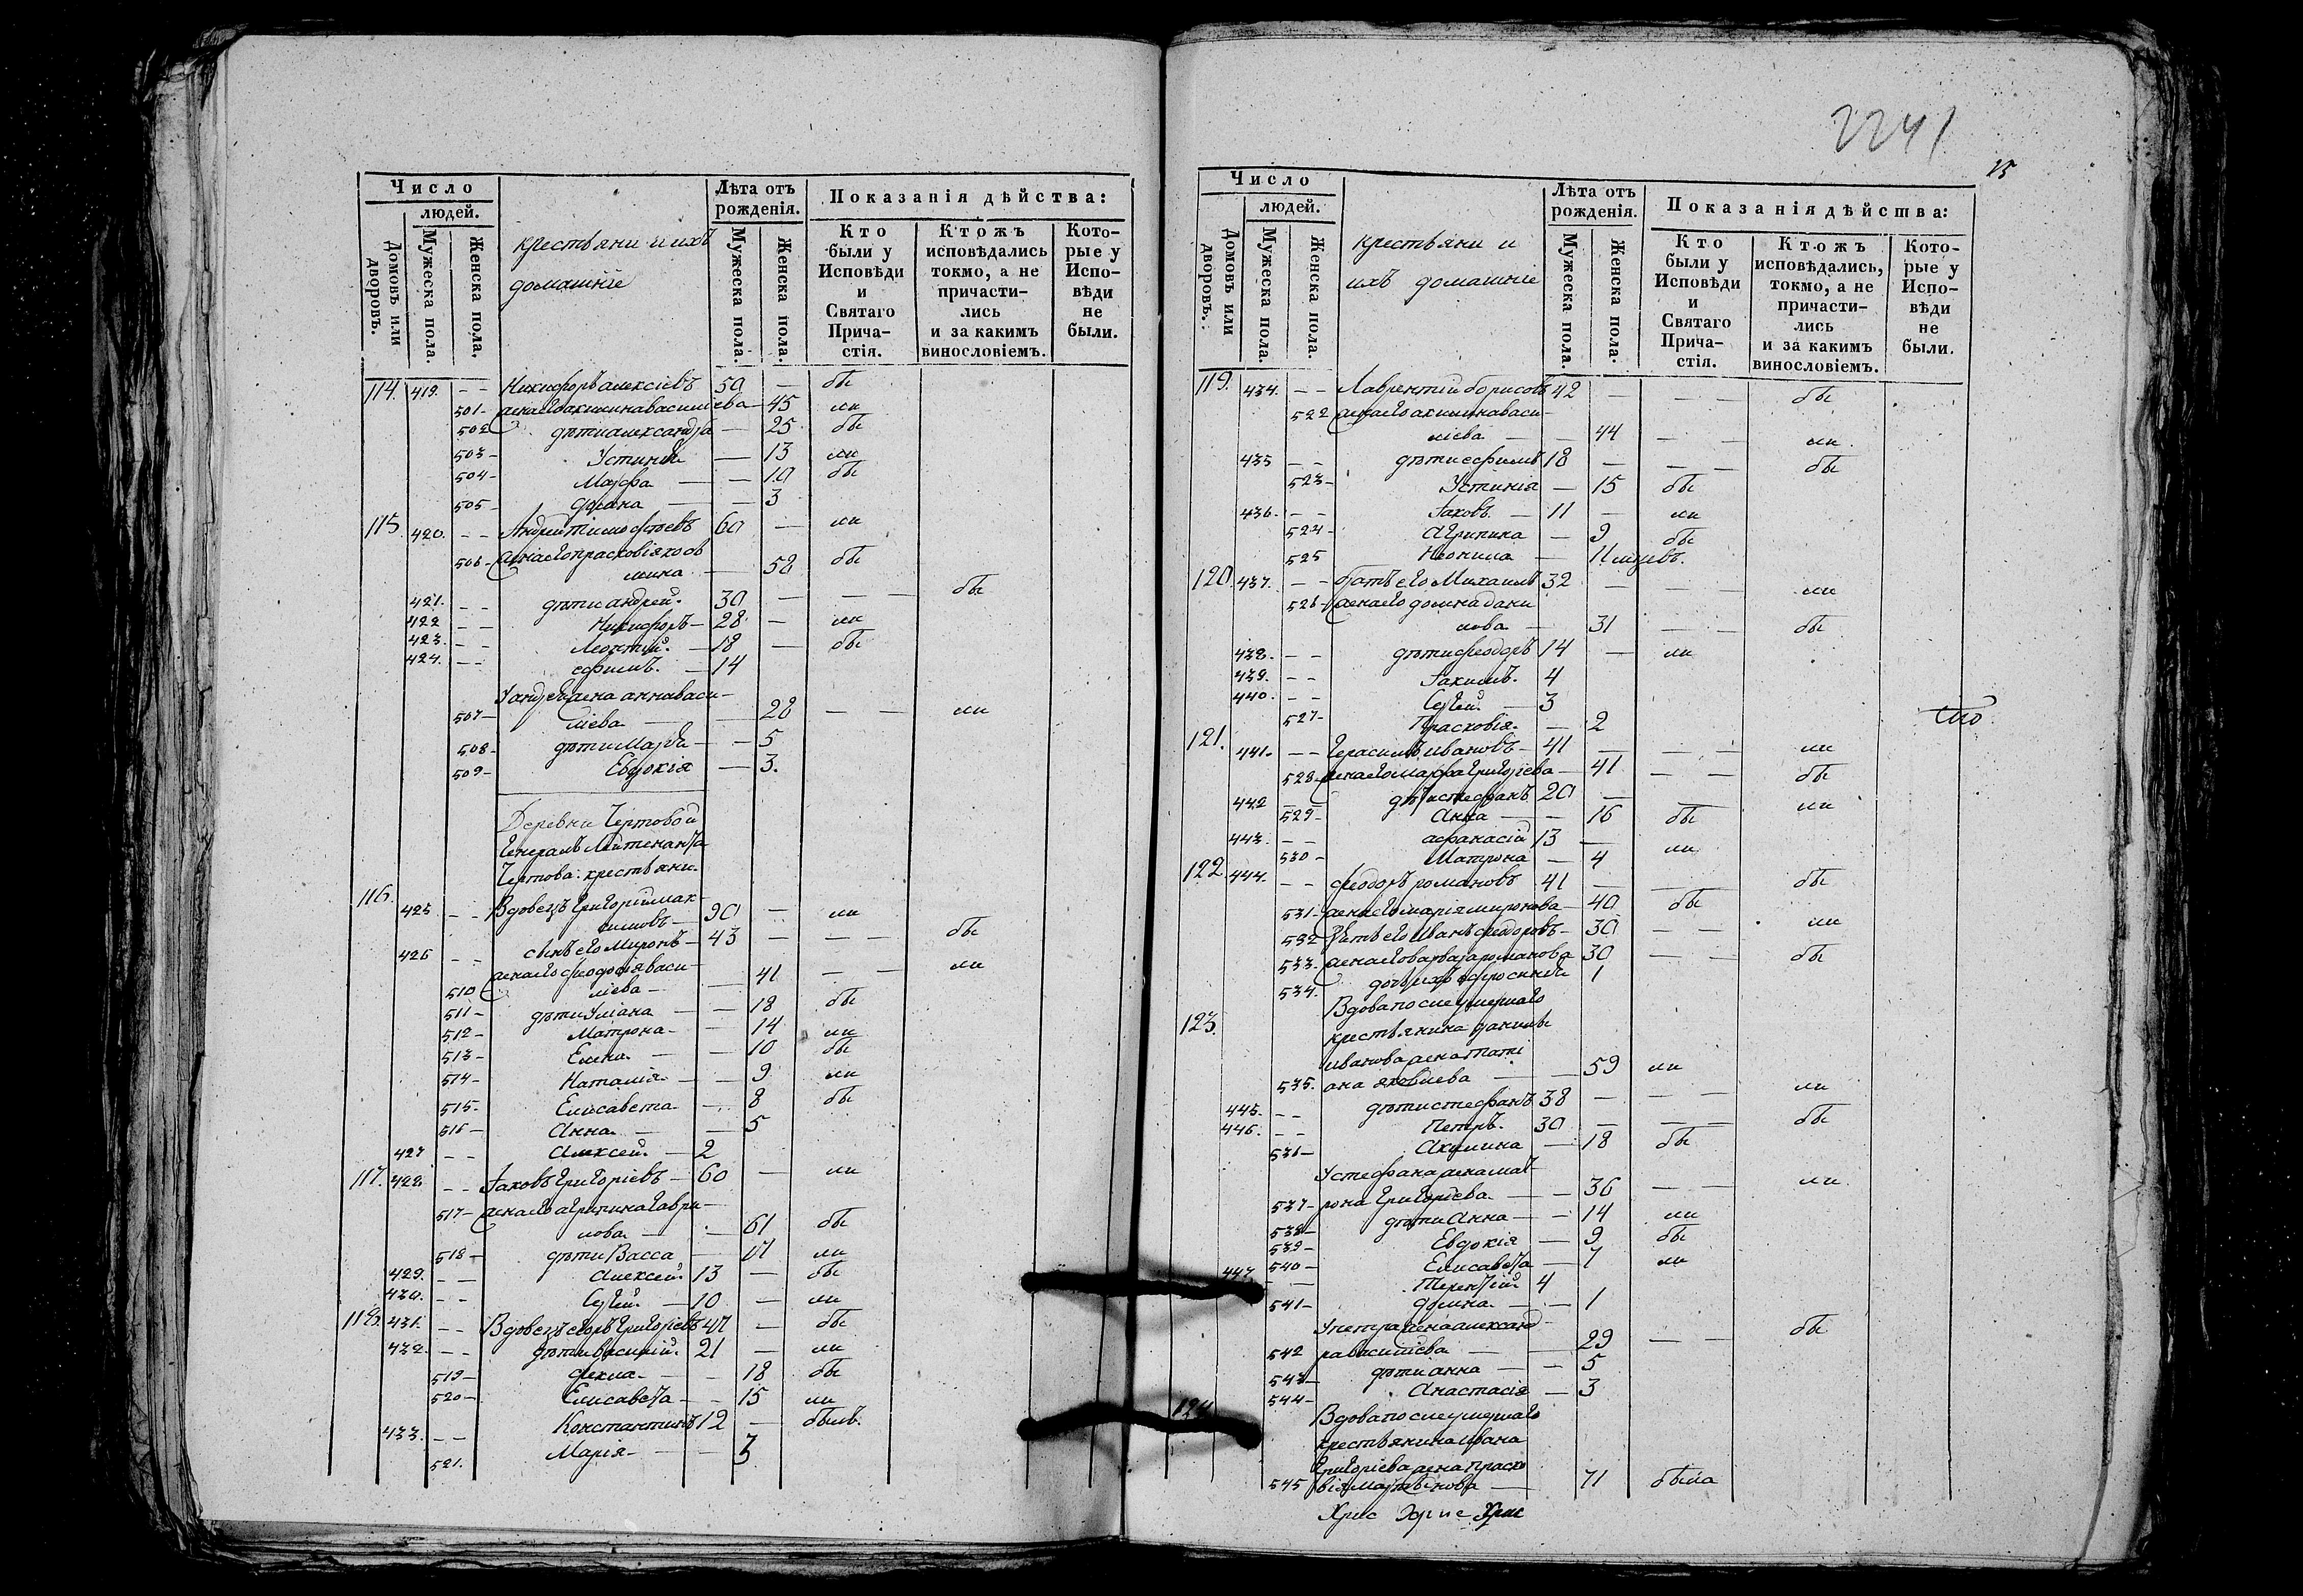 Число
людей.
Домовъ или дворовъ.
Мужеска пола.
Женска пола,
крестьяни и ихъ
домашніе
Лѣта отъ рожденія.
Мужеска пола.
Женска пола.
Показанія дѣйства:
Кто были у Исповѣди и Святаго Прича-стія.
Ктожъ исповѣдались токмо, а не причасти-лись и за какимъ винословіемъ.
Кото-рые у Испо-вѣди не были.
114. 419. – – Никифоръ алексіевъ 50 — бы
501 – жена его акилина василіева — 45 ли
502 дѣти александра — 25 бы
503 – Устинія — 13 ли
504 – Марфа — — 10 бы
505 – — — 3
115. 420. – – Андрей тимофѣевъ 60 — ли
506 – жена его прасковія козь
мина — 52 бы
421. – – дѣти андрей. 30 — — — бы
422 – – Никифоръ – 28 — ли
423. – – Леонтій. – 18 — бы
424. – – ефимъ. – 14
У андрея жена анна васи–
507 – ліева — — 28 — — ли
508 – дѣти Марѳа — – 5
509 – Евдокія — 3.
Деревни Чертовой
Генералъ Лейтенанта
Чертова крестьяни.
116. 425 – – Вдовецъ Григорій мак–
симовъ – 90 — ли
426 – – сынъ его Миронъ – 43 — — — бы
жена его феодосія васи–
510 ліева – — 41 — — ли
511 – дѣти Уліана — — 18 бы
512 – Матрона – — 14 ли
513 – Елена. — — 10 бы
514 – Наталія – — 9 ли
515 – Елисавета – — 8 бы
516 – Анна. — — 5
427 – – Алексей. — 2
117. 428 – – Іаковъ Григоріевъ – 60 — ли
517 – жена его агрипина гаври–
лова – — . 61 бы
518 – дѣти Васса — 17 ли
429. – – Алексей. 13 — бы
430. – – Сергей. — 10 — ли
118. 431. – – Вдовецъ егоръ Григоріевъ 47 — бы
432. – – дѣти василій. 21 — ли
519 – фекла. — – 18 бы
520 – Елисавета — – 15 ли
433. – – Константинъ 12 — былъ.
521. Марія — — 3
2241
15
Число
людей.
Домовъ или дворовъ.
Мужеска пола.
Женска пола.
крестьяни и
ихъ домашніе
Лѣта отъ рожденія.
Мужеска пола.
Женска пола.
Показанія дѣйства:
Кто были у Исповѣди и Святаго Прича-стія.
Ктожъ исповѣдались, токмо, а не причасти-лись и за какимъ винословіемъ.
Кото-рые у Испо-вѣди не были.
119. 434. – – Лаврентий борисовъ 42 — — — бы
522 жена его акилина васи–
ліева — — 44 — — ли
435 – – дѣти ефимъ 18 — — — бы
523 – Устинія — 15 бы
436. – – Іаковъ. — 11 — ли
524 – Агрипина — 9 бы
525 Неонила — 11 мцевъ.
120. 437. – – братъ его Михаилъ 32 — — — ли
526 – жена его домна дани
лова — 31 — — бы
438. – – дѣти феодоръ 14 — ли
439. – – Іакимъ. 4
440. – – Сергей. — 3
527 – Прасковія. — 2
121. 441 – – – Герасимъ ивановъ – 41 — — — ли
528 – жена его марфа Григоріева – 41 — — бы
442 – – дѣти стефанъ 20 — ли
529 – Анна — – 16 бы
443. – – афанасій 13 — ли
530 – Матрона — 4
122 444. – – феодоръ романовъ 41 — — — бы
531 – жена его марія миронова – 40 бы
532 Зять его Иванъ феодоровъ – 30 — — ли
533. жена его варвара романова 30 — — бы
534. дочь ихъ ефросинія 1
123. Вдова после умершаго
крестьянина данила
иванова жена тати
535. ана яковлева — — 59 ли
445. – – дѣти стефанъ 38 — — — ли
446. – – Петръ. 30 — — — бы
536 – Акулина — 18 бы
У стефана жена мат
537 – рона Григоріева. — — 36 — — ли
538 – дѣти Анна — – 14 ли
539 – Евдокія — 9 бы
540 – Елисавета — 7 ли
447. – — Терентій. 4
541 – домна. — – 1
У петра жена александ–
542 ра василіева — — 29 — — бы
543 – дѣти анна — – 5
544 – Анастасія — 3
124 Вдова после умершаго
крестьянина ивана
Григоріева жена праско
545 вія Мартинова — 71 была